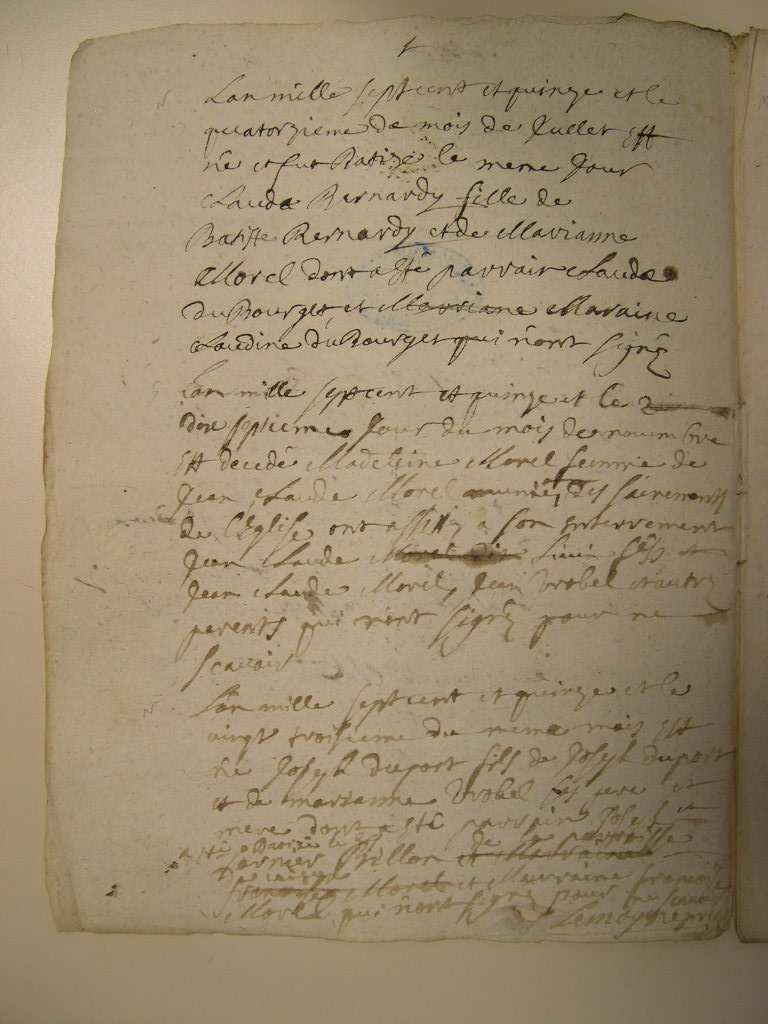 Lan mille sept cent et quinze et le
quatorzieme de mois de Jullet Est
né et fut Batize le meme Jour
Clauda Bernardy fille de
Batiste Bernardy et de Marianne
Morel dont a été parrain Claude
du Bourget et Mariane Maraine
Claudine du Bourget qui nont signé
Lan mille sept cent et quinze et le
dix septieme Jour du mois de nouembre
Est decedé Madeleine Morel femme de
Jean Claude Morel munie des sacrements
de l'Eglise ont assisté a son enterrement
Jean Claude Morel et
Jean Claude Morel, Jean Vrobel et autre
parents qui nont signé pour ne
scauoir
Lan mille sept cent et quinze et le
vingt troisieme du meme mois Est
né Joseph duport fils de Joseph duport
et de marianne Vrobel ses pere et
mere dont a été parrain Joseph
Brillon de la parroisse
Morel et Marraine francoise
Morel qui nont signé pour ne scauoir
Lemoyne